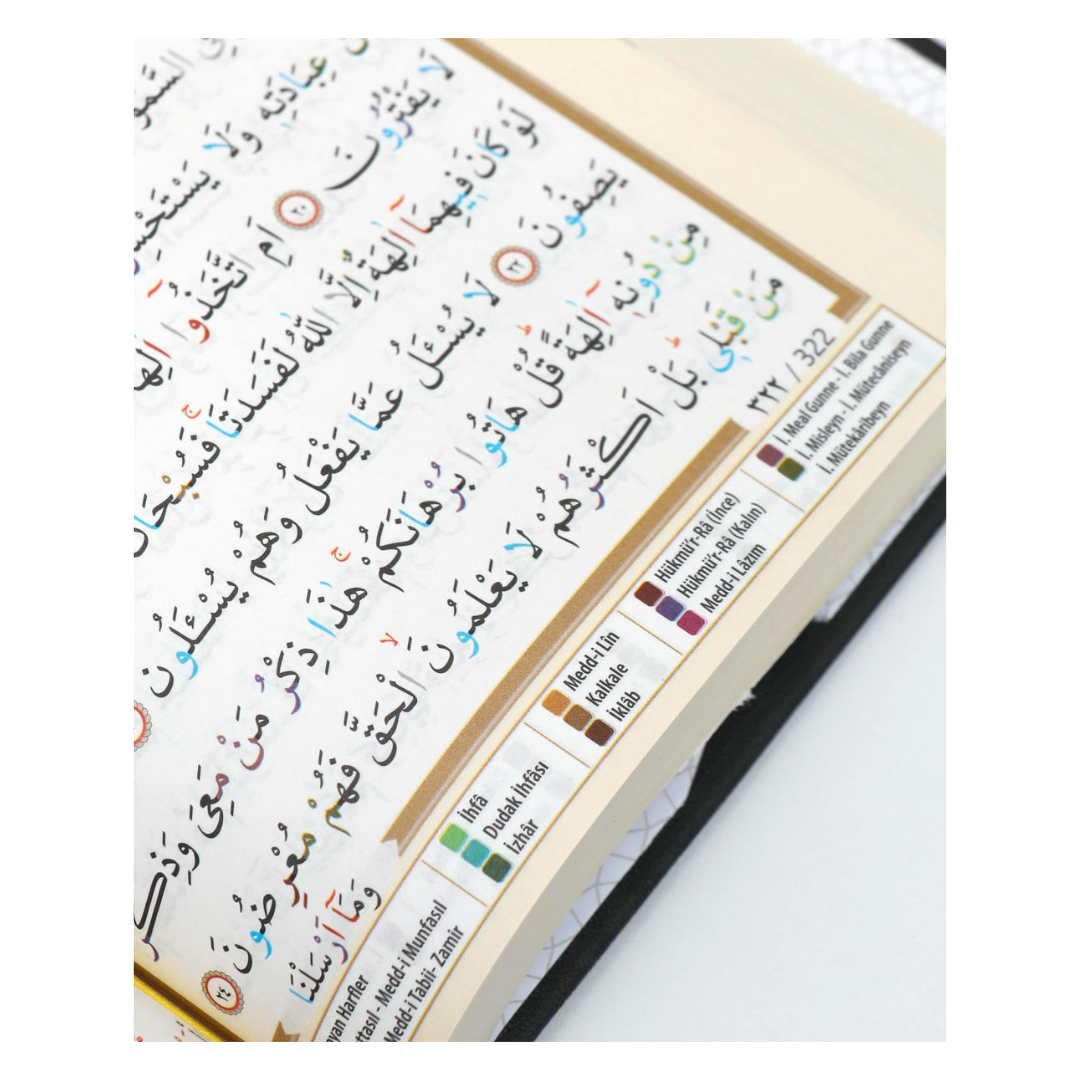 السَّمٰو
عِبَادَتِهٖ وَلَا يَسْتَحْسِ
لَا يَفْتُرُونَ ٢٠ اَمِ اتَّخَذُٓوا اٰلِهَ
لَوْ كَانَ فِيهِمَٓا اٰلِهَةٌ اِلَّا اللّٰهُ لَفَسَدَتَاۚ فَسُبْحَانَ
يَصِفُونَ ٢٢ لَا يُسْـَٔلُ عَمَّا يَفْعَلُ وَهُمْ يُسْـَٔلُونَ
مِنْ دُونِهٖٓ اٰلِهَةًۜ قُلْ هَاتُوا بُرْهَانَكُمْۚ هٰذَا ذِكْرُ مَنْ مَعِيَ وَذِكْرُ
مَنْ قَبْلِيۜ بَلْ اَكْثَرُهُمْ لَا يَعْلَمُونَۙ الْحَقَّ فَهُمْ مُعْرِضُونَ ٢٤
وَمَٓا اَرْسَلْنَا
٣٢٢ / 322
yan Harfler
ttasıl - Medd-i Munfasıl
Medd-i Tabii- Zamir
İhfâ
Dudak İhfâsı
İzhâr
Medd-i Lîn
Kalkale
İklâb
Hükmü'r-Râ (İnce)
Hükmü'r-Râ (Kalın)
Medd-i Lâzım
İ. Meal Gunne - İ. Bila Gunne
İ. Misleyn - İ. Mütecâniseyn
İ. Mütekâribeyn